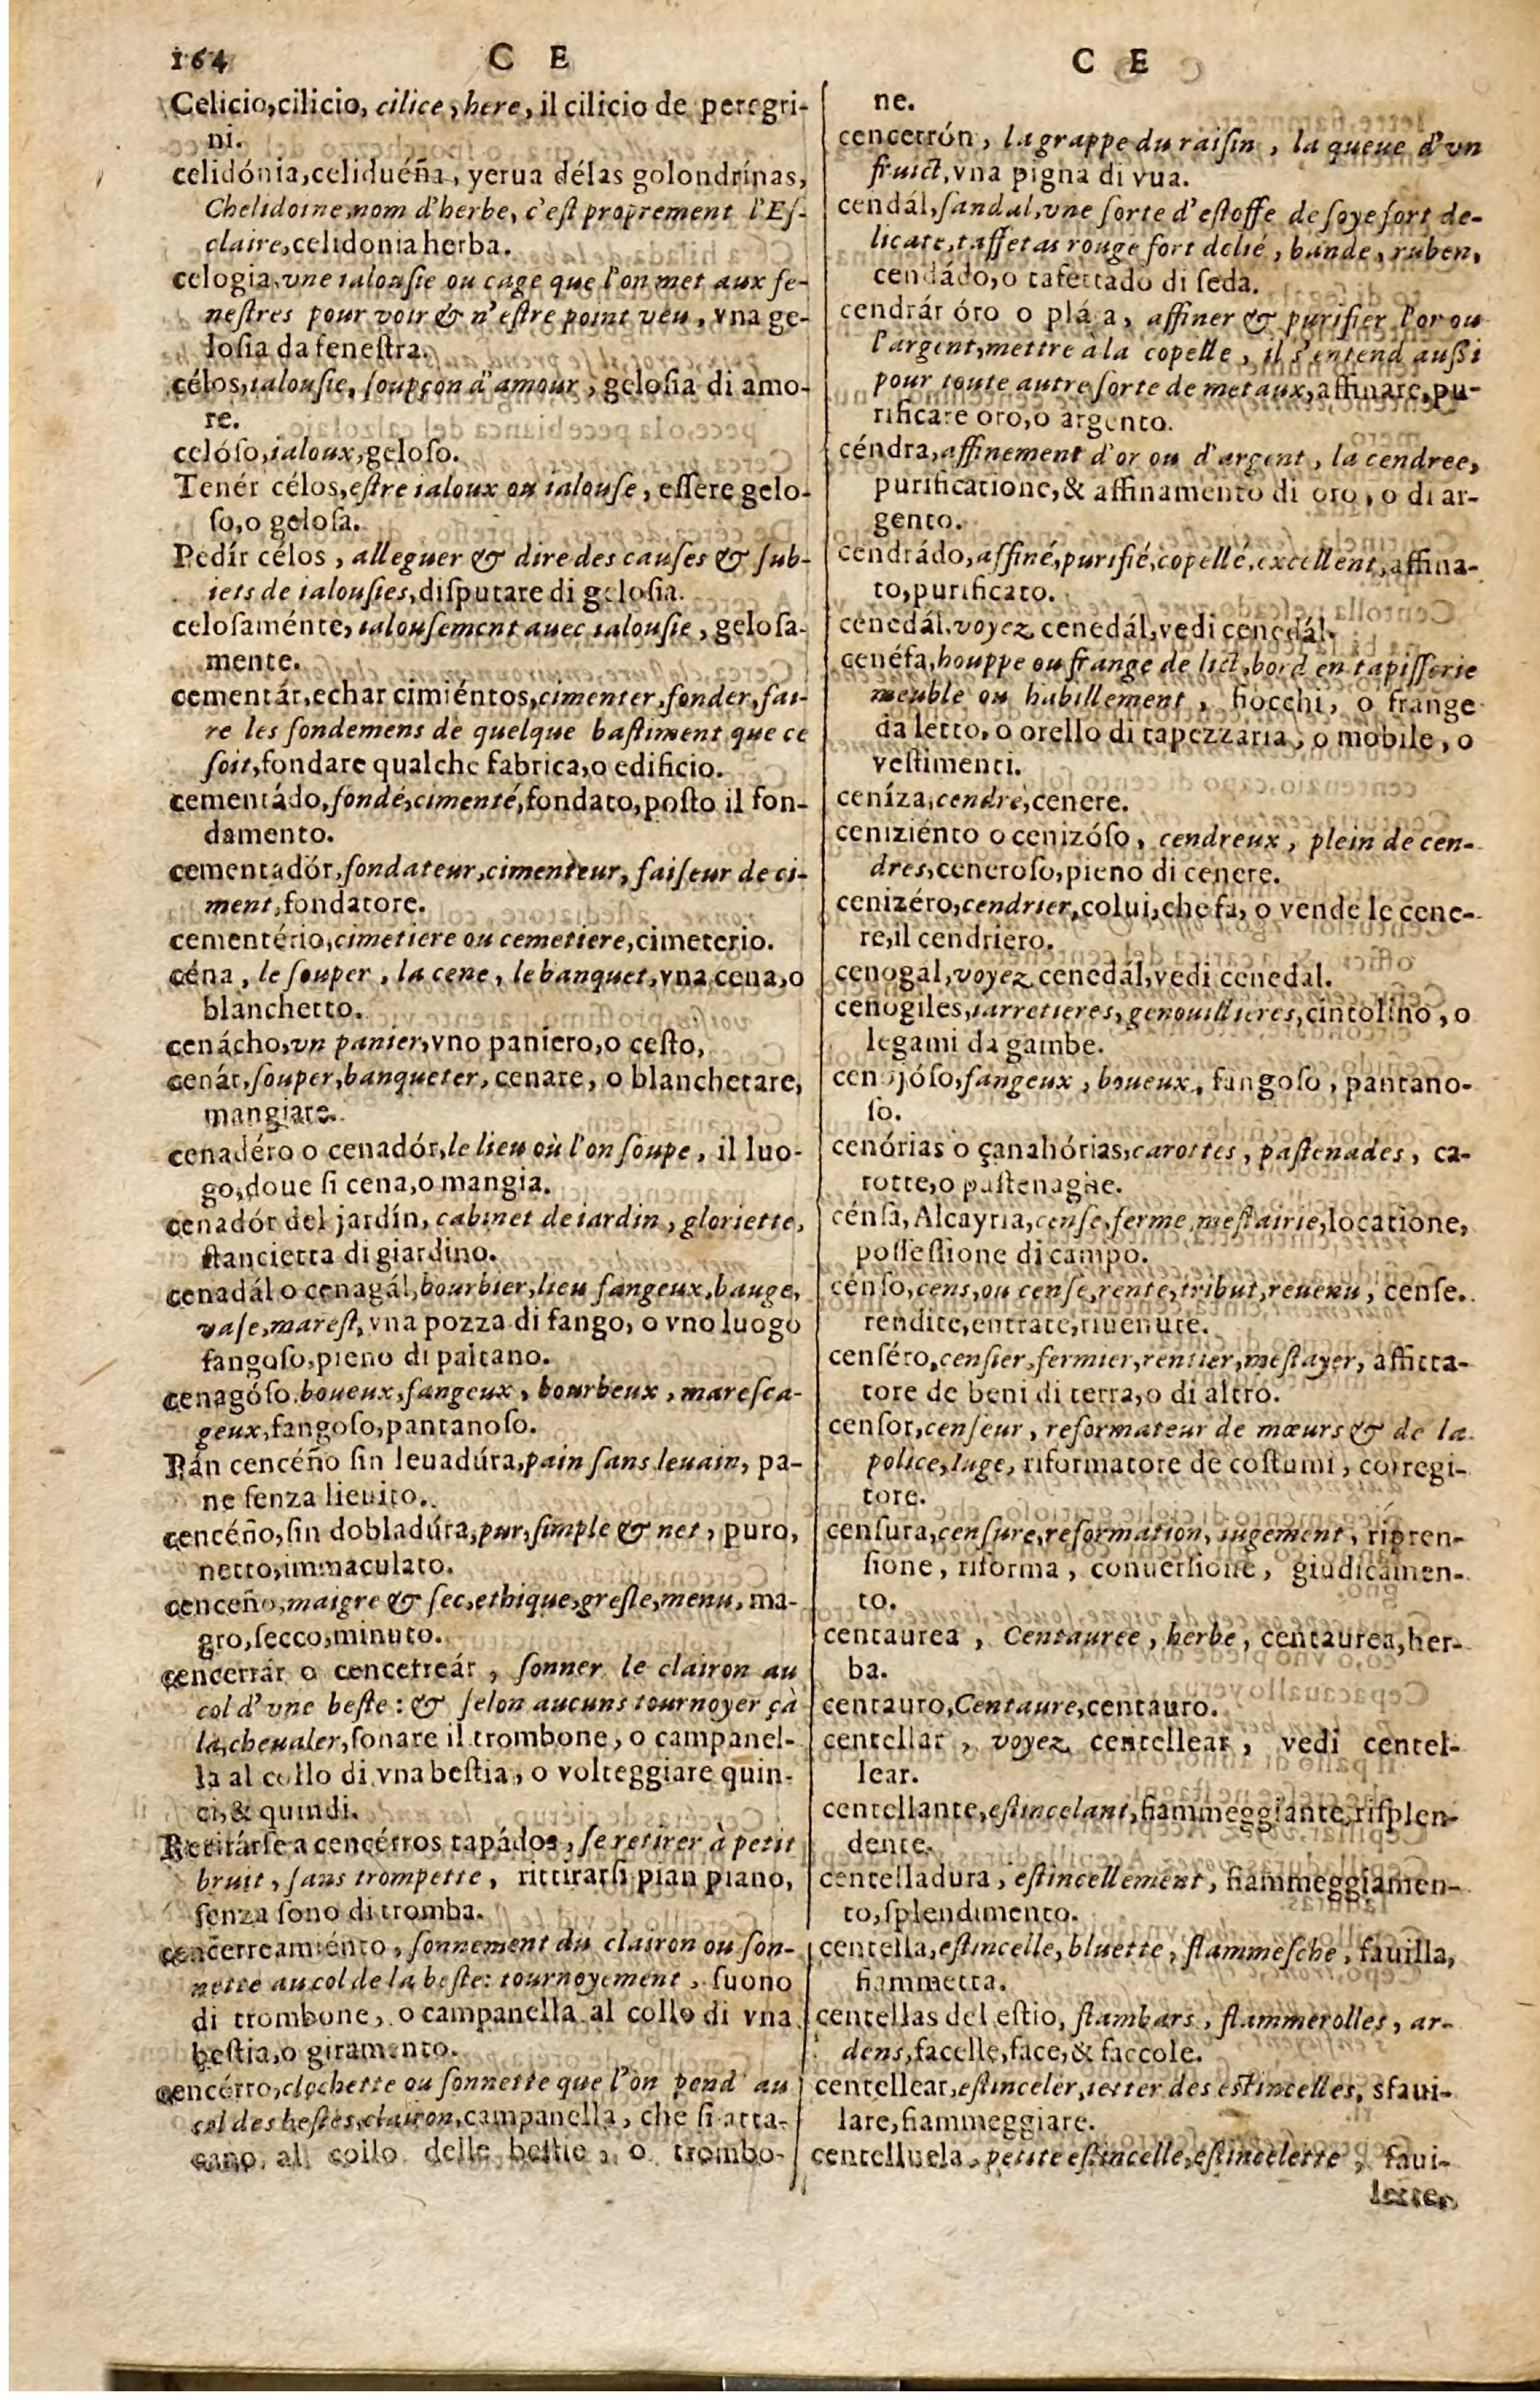 164 C E
Celicio,cilicio, cilice, here, il cilicio de peregri-
ni.
celidónia,celiduéña, yerua délas golondrínas,
Chelidoine,nom d'herbe, c'eſt proprement l'Eſ-
claire,celidonia herba.
celogia,vne ialouſie ou cage que l'on met aux fe-
neſtres pour voir & n'eſtre point veu, vna ge-
loſia da feneſtra.
célos,ialouſie, ſoupçon d'amour, geloſia di amo-
re.
celóſo,ialoux,geloſo.
Tenér célos,eſtre ialoux ou ialouſe, eſſere gelo-
ſo,o geloſa.
Pedír célos, alleguer & dire des cauſes & ſub-
iets de ialouſies,diſputare di geloſia.
celoſaménte, ialouſement auec ialouſie, geloſa-
mente.
cementár,echar cimiéntos,cimenter,fonder,fai-
re les fondemens de quelque baſtiment que ce
ſoit,fondare qualche fabrica,o edificio.
cementádo,fondé,cimenté,fondato,poſto il fon-
damento.
cementadór,fondateur,cimenteur, faiſeur de ci-
ment,fondatore.
cementério,cimetiere ou cemetiere,cimeterio.
céna, le ſouper, la cene, le banquet,vna cena,o
blanchetto.
cenácho,vn panier,vno paniero,o ceſto,
cenár,ſouper,banqueter, cenare, o blanchetare,
mangiare.
cenadéro o cenadór,le lieu où l'on ſoupe, il luo-
go,doue ſi cena,o mangia.
cenadór del jardín, cabinet de iardin, gloriette,
ſtancietta di giardino.
cenadál o cenagál,bourbier,lieu fangeux,bauge,
vaſe,mareſt,vna pozza di fango, o vno luogo
fangoſo,pieno di paltano.
cenagóſo,boueux,fangeux, bourbeux, mareſca-
geux,fangoſo,pantanoſo.
Pán cencéño ſin leuadúra,pain ſans leuain, pa-
ne ſenza lieuito.
cencéño,ſin dobladúra,pur,ſimple & net, puro,
netto,immaculato.
cenceño,maigre & ſec,ethique,greſle,menu, ma-
gro,ſecco,minuto.
cencerrár o cencerreár, ſonner le clairon au
col d'vne beſte: & ſelon aucuns tournoyer çà
là,cheualer,ſonare il trombone, o campanel-
la al collo di vna beſtia, o volteggiare quin-
ci,& quindi.
Retirárſe a cencérros tapádos, ſe retirer à petit
bruit, ſans trompette, rittirarſi pian piano,
ſenza ſono di tromba.
cencerreamiénto, ſonnement du clairon ou ſon-
nette au col de la beſte: tournoyement, ſuono
di trombone, o campanella al collo di vna
beſtia,o giramento.
cencérro,clochette ou ſonnette que l'on pend au
col des beſtes,clairon,campanella, che ſi atta-
cano al collo delle beſtie, o trombo-
C E
ne.
cencerrón, la grappe du raiſin, la queue d'vn
fruict,vna pigna di vua.
cendál,ſandal,vne ſorte d'eſtoffe de ſoye fort de-
licate,taffetas rouge fort delié, bande, ruben,
cendádo,o tafettado di ſeda.
cendrár óro o pláta, affiner & purifier l'or ou
l'argent,mettre à la copelle, il s'entend auſſi
pour toute autre ſorte de metaux,affinare,pu-
rificare oro,o argento.
céndra,affinement d'or ou d'argent, la cendree,
purificatione,& affinamento di oro, o di ar-
gento.
cendrádo,affiné,purifié,copellé,excellent,affina-
to,purificato.
cenedál,voyez cenedál,vedi cenedál.
cenéfa,houppe ou frange de lict,bord en tapiſſerie
meuble ou habillement, fiocchi, o frange
da letto, o orello di tapezzaria, o mobile, o
veſtimenti.
ceníza,cendre,cenere.
ceniziénto o cenizóſo, cendreux, plein de cen-
dres,ceneroſo,pieno di cenere.
cenizéro,cendrier,colui,che fa, o vende le cene-
re,il cendriero.
cenogál,voyez cenedál,vedi cenedal.
cenogiles,iarretieres,genouillieres,cintolino, o
legami da gambe.
cenojóſo,fangeux, boueux, fangoſo, pantano-
ſo.
cenórias o çanahórias,carottes, paſtenades, ca-
rotte,o paſtenaghe.
cénſa, Alcayria,cenſe,ferme,meſtairie,locatione,
poſſeſſione di campo.
cénſo,cens,ou cenſe,rente,tribut,reuenu, cenſe.
rendite,entrate,riuenute.
cenſéro,cenſier,fermier,rentier,meſtayer, affitta-
tore de beni di terra,o di altro.
cenſor,cenſeur, reformateur de mœurs & de la
police,Iuge, riformatore de coſtumi, corregi-
tore.
cenſura,cenſure,reformation, iugement, ripren-
ſione, riforma, conuerſione, giudicamen-
to.
centaurea, Centauree, herbe, centaurea,her-
ba.
centauro,Centaure,centauro.
centellar, voyez centellear, vedi centel-
lear.
centellante,eſtincelant,fiammeggiante,riſplen-
dente.
centelladura, eſtincellement, fiammeggiamen-
to,ſplendimento.
centella,eſtincelle,bluette, flammeſche, fauilla,
fiammetta.
centellas del eſtio, flambars, flammerolles, ar-
dens,facelle,face,& faccole.
centellear,eſtinceler,ietter des eſtincelles, sfaui-
lare,fiammeggiare.
centelluela, petite eſtincelle,eſtincelette, faui-
lette,